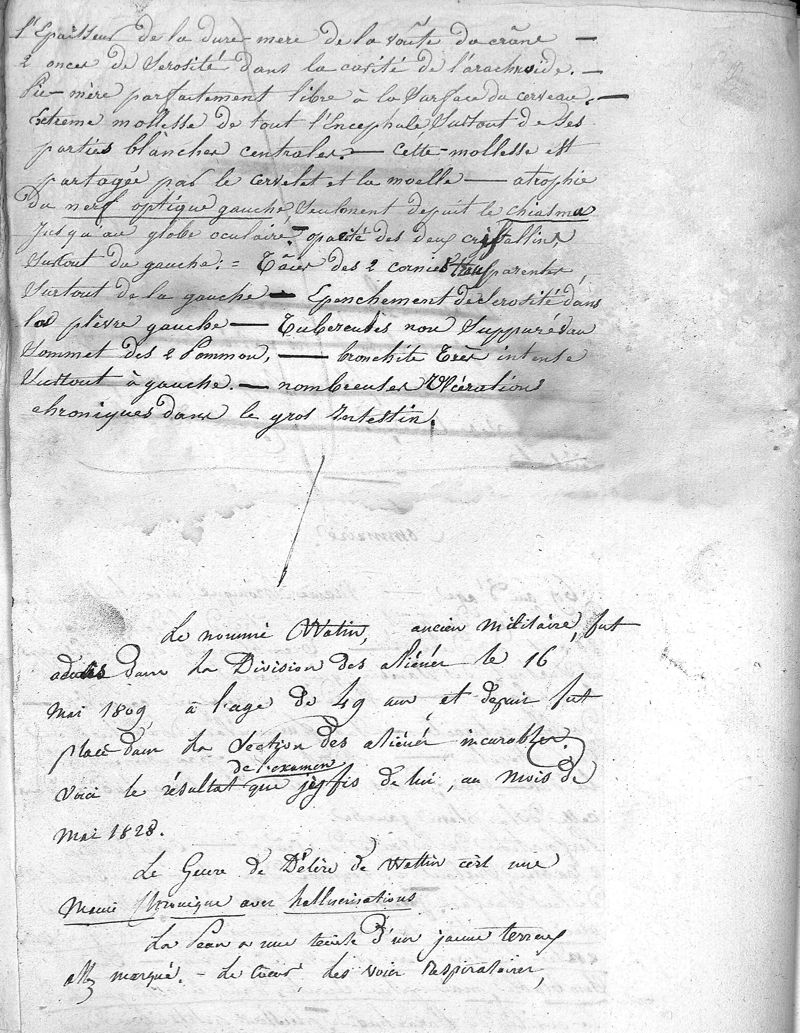 l'Epaisseur de la dure-mere de la voûte du crâne —
2 onces de Serosité dans la cavité de l'arachnoïde. —
Pie-mère parfaitement libre à la Surface du cerveau. —
Extreme mollesse de tout l'Encephale Surtout de Ses
parties blanches centrales. — Cette mollesse est
partagée par le cervelet et la moelle — atrophie
du nerf optique gauche Seulement depuis le chiasma
Jusqu'au globe oculaire. — opacité des deux cristallins,
Surtout du gauche : = Tâches des 2 cornées transparentes,
Surtout de la gauche — Epanchement de Serosité dans
la plèvre gauche — Tubercules non Suppurés au
Sommet des 2 Poumons, — bronchite très intense
Surtout à gauche. — nombreuses Ulcérations
chroniques dans le gros Intestin.
Le nommé Wattin, ancien militaire, fut
admis dans la Division des aliénés le 16
Mai 1809, à l'age de 49 ans, et depuis fut
placé dans la Section des aliénés incurables.
Voici le résultat de l'examen que je fis de lui, au Mois de
Mai 1828.
Le Genre de Délire de Wattin c'est une
Manie Chronique avec hallucinations
La Peau a une teinte d'un jaune terreux
assez marqué. — Le Coeur, les voies respiratoires,